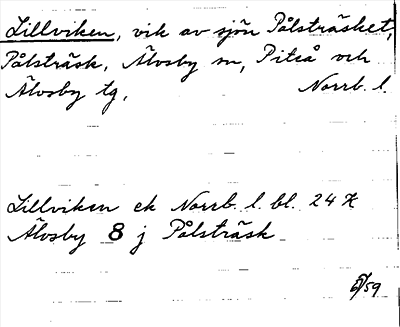 Lillviken, vik av sjön Pålsträsket,
Pålsträsk, Älvsby sn, Piteå och
Älvsby tg, Norrb. l.
Lillviken ek Norrb. l. bl. 24 K
Älvsby 8 j Pålsträsk
/59